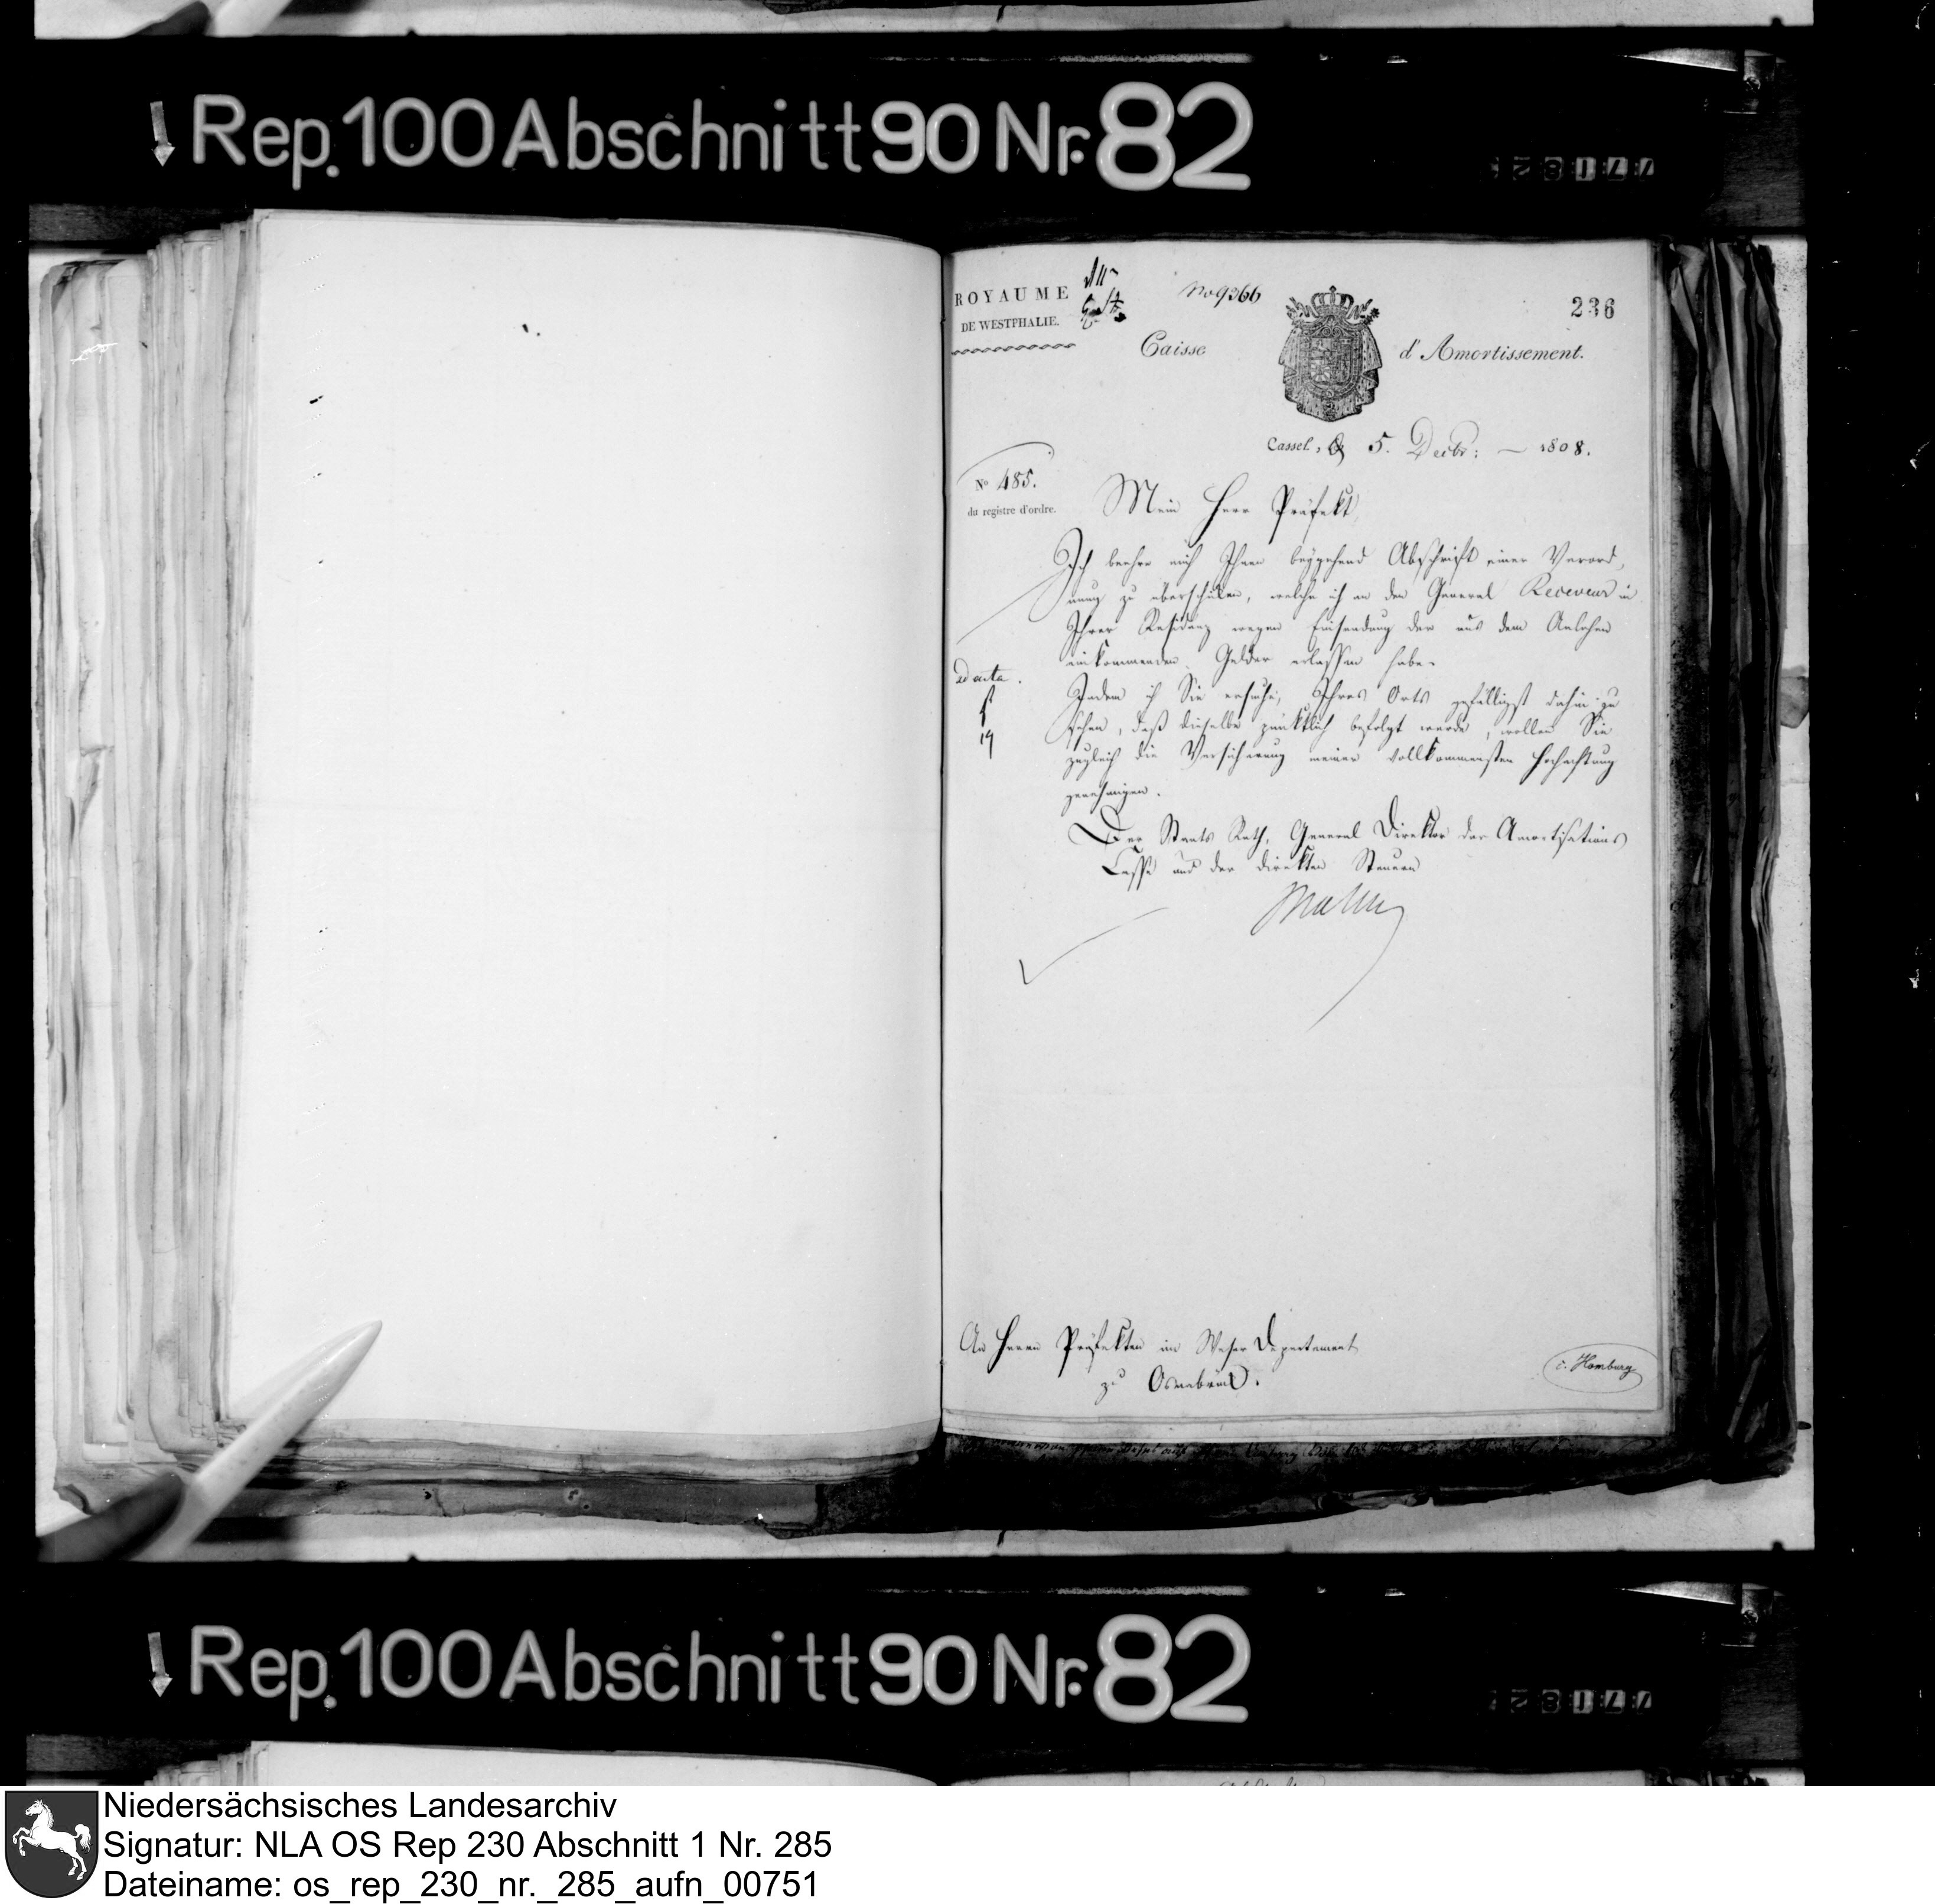 Rep. 100 Abschnitt 90 Nr. 82
ROYAUME
DE WESTPHALIE.
No 9366
236
Caisse d'Amortissement.
Cassel, 5. Decbr: — 1808.
No 485.
du registre d'ordre.
Mein Herr Präfekt
Ich beehre mich Ihnen beygehend Abschrift einer Verord,
nung zu überschicken, welche ich an den General Receveur in
Ihrer Residenz wegen Einsendung der aus dem Anlehen
einkommenden Gelder erlassen habe.
ad acta.
Indem ich Sie ersuche, Ihres Orts gefälligst dahin zu
sehen, daß dieselbe pünktlich befolgt werde, wollen Sie
zugleich die Versicherung meiner vollkommensten Hochachtung
genehmigen.
Der Staats Rath, General Direktor der Amortisations
Casse und der direkten Steuern
Malchus
An Herrn Präfekten im Weser Departement
zu Osnabrück.
v. Homburg
Rep. 100 Abschnitt 90 Nr. 82
Niedersächsisches Landesarchiv
Signatur: NLA OS Rep 230 Abschnitt 1 Nr. 285
Dateiname: os_rep_230_nr._285_aufn_00751